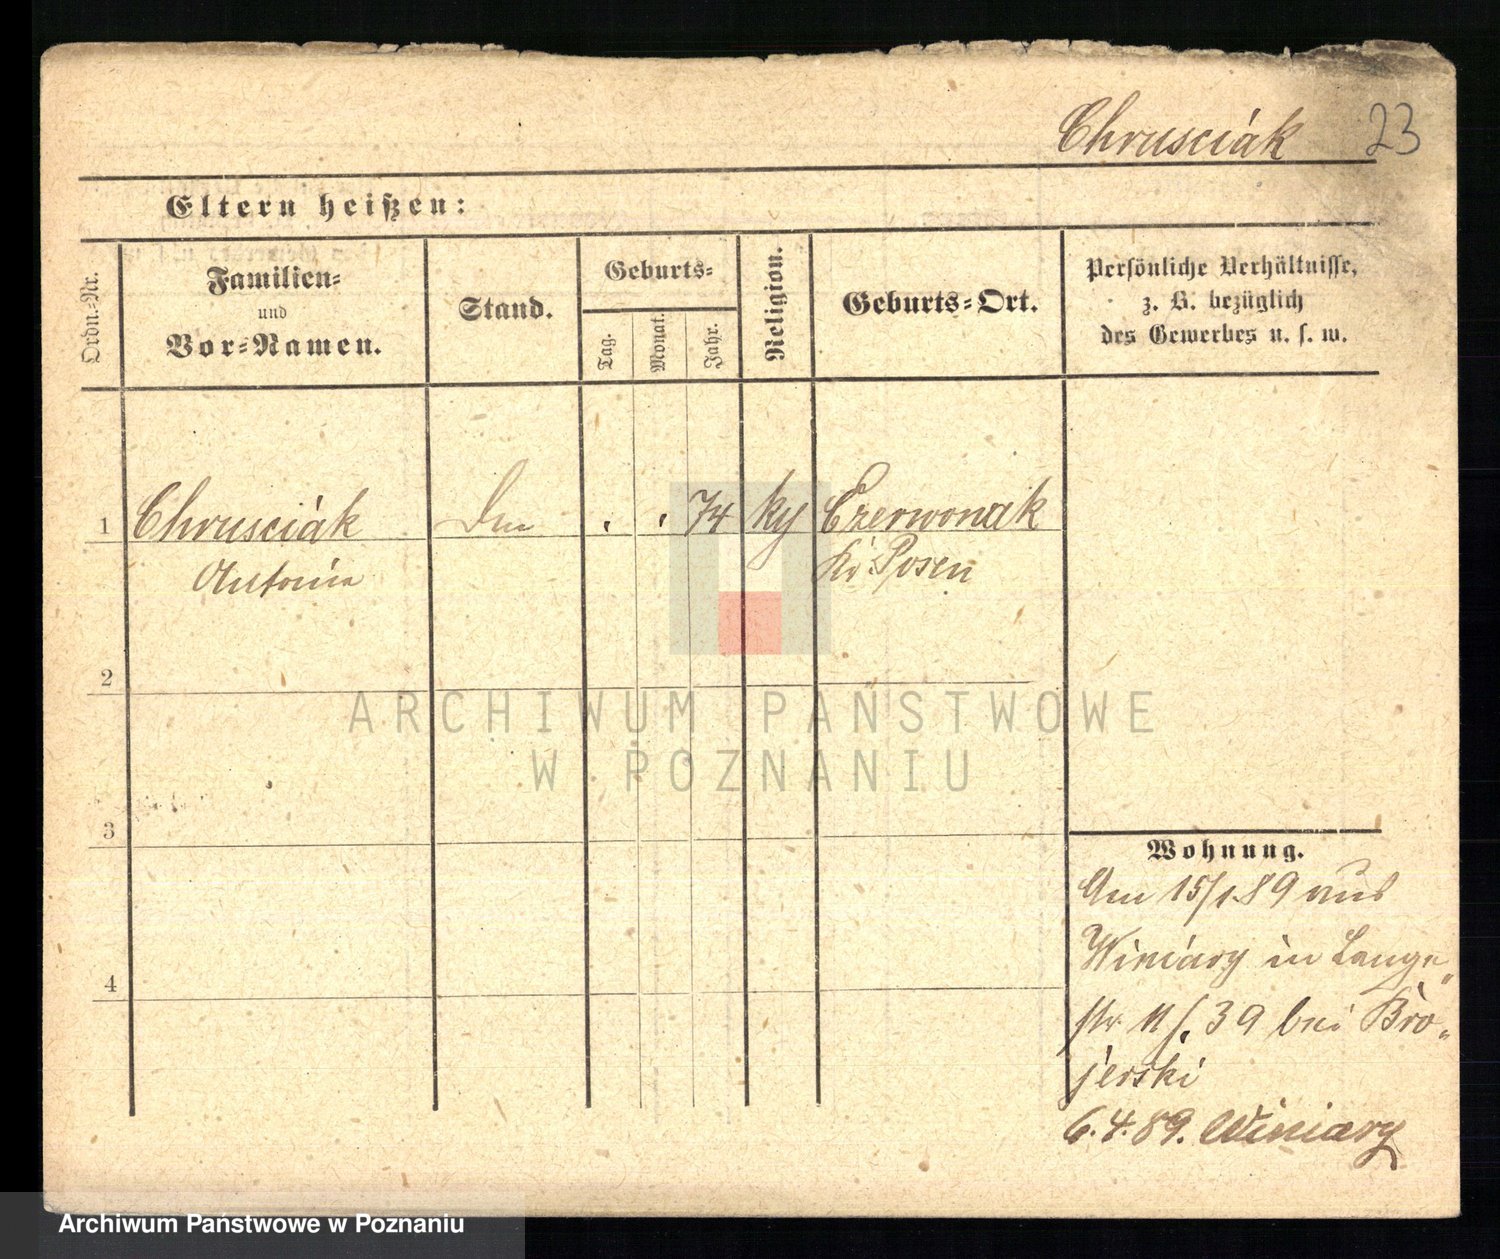 Chrusciák 23
Eltern heißen:
Ordn.-Nr.
Familien-
und
Vor-Namen.
Stand.
Geburts-
Tag.
Monat.
Jahr.
Religion.
Geburts-Ort.
Persönliche Verhältnisse,
z. B. bezüglich
des Gewerbes u. s. w.
1 Chrusciák . . 74 kg Czerwonak
Antonie Kr Posen
2
3
4
Wohnung.
Am 15/1.89 aus
Winiary in Lange
str 11 39 bei Bro-
jerski
6.4.89. Winiary
ARCHIWUM PAŃSTWOWE
W POZNANIU
Archiwum Państwowe w Poznaniu